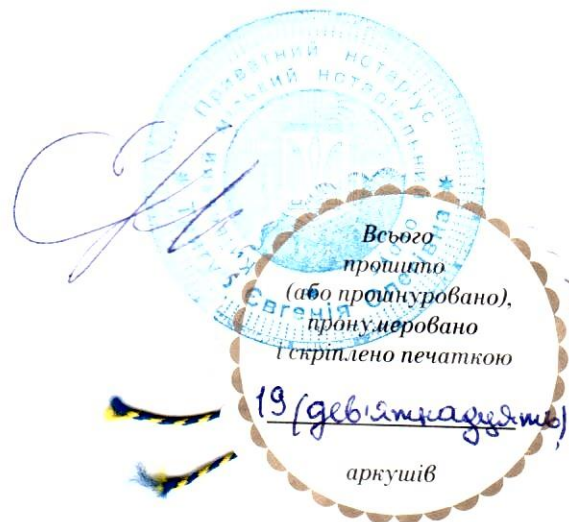 Приватний нотаріус
Євгенія Олегівна
Всього
прошито
(або прошнуровано),
пронумеровано
і скріплено печаткою
19 (дев'ятнадцять)
аркушів